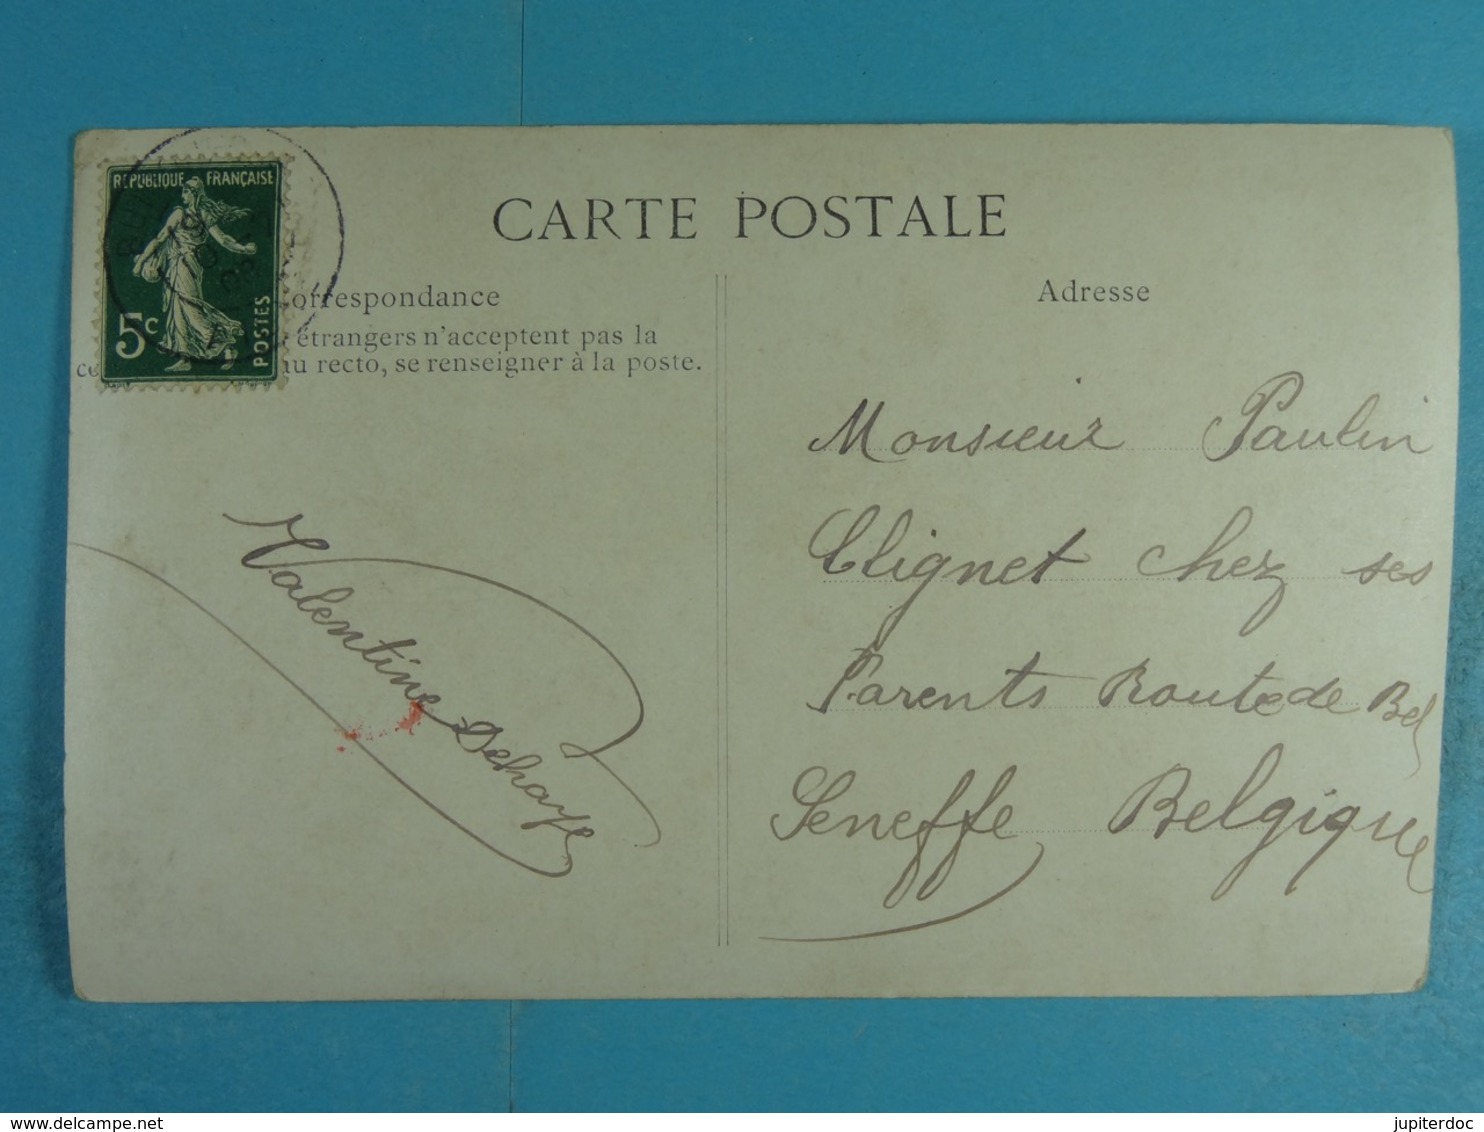 CARTE POSTALE
RÉPUBLIQUE FRANÇAISE
5c
POSTES
orrespondance
étrangers n'acceptent pas la
au recto, se renseigner à la poste.
Valentine Dehaye
Adresse
Monsieur Paulin
Clignet chez ses
Parents Route de Bel
Seneffe Belgique
www.delcampe.net
jupiterdoc